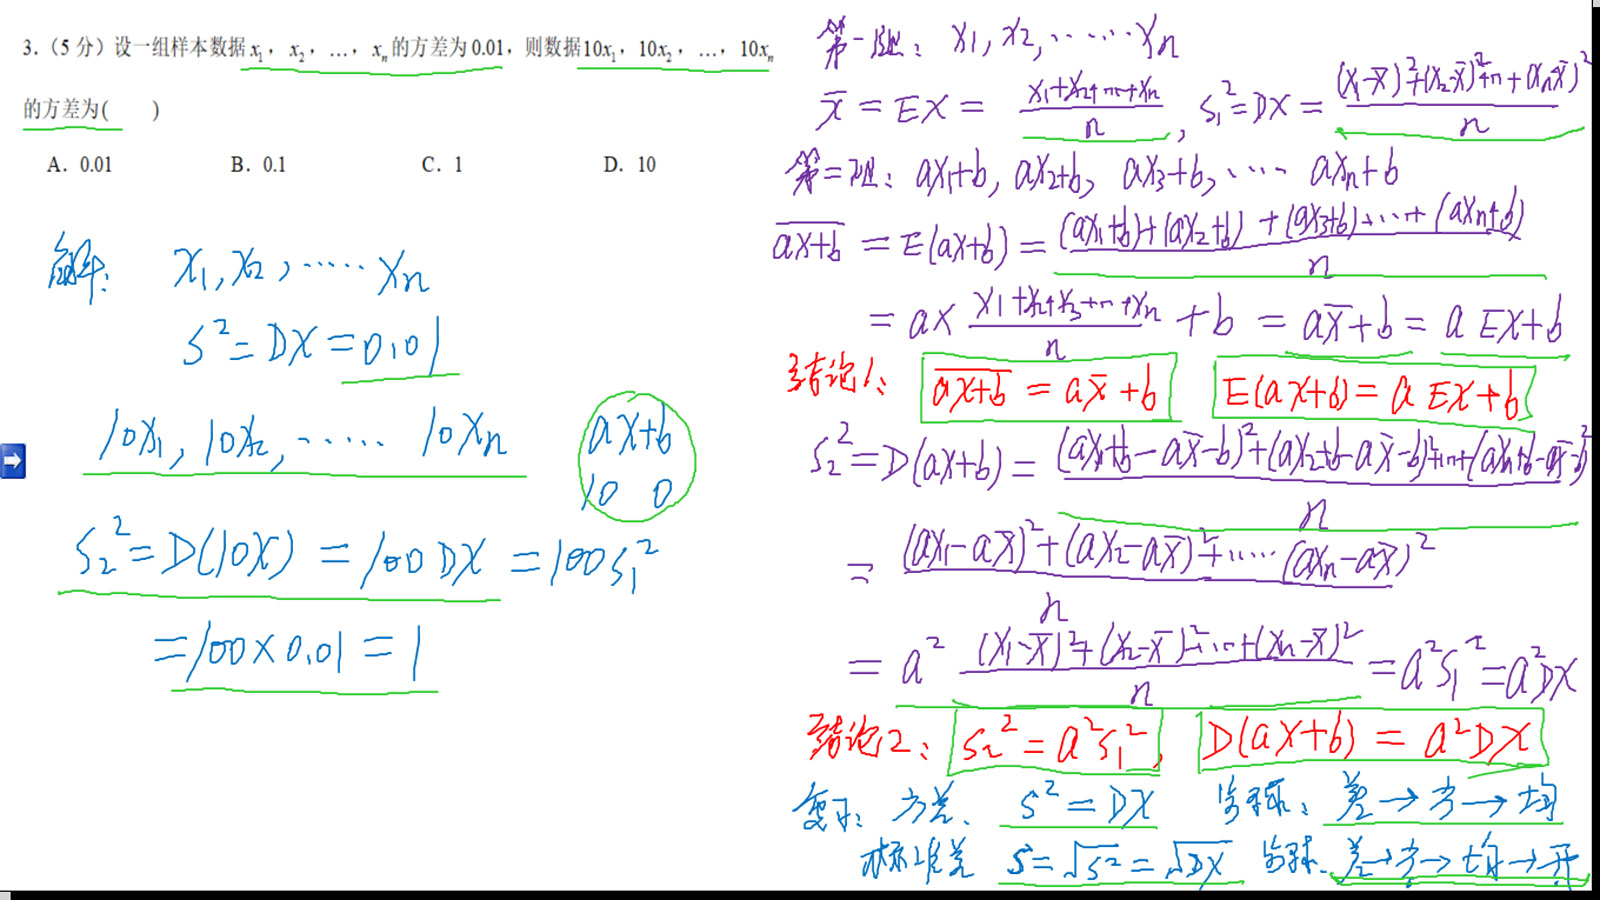 3. (5 分) 设一组样本数据 x₁，x₂，…，xₙ 的方差为 0.01，则数据 10x₁，10x₂，…，10xₙ
的方差为(　　)
A. 0.01　B. 0.1　C. 1　D. 10
解: x₁, x₂, …… xₙ
s² = DX = 0.01
10x₁, 10x₂, …… 10xₙ
ax+b
10 0
s₂² = D(10X) = 100DX = 100s₁²
= 100×0.01 = 1
第一组: x₁, x₂, …… xₙ
x̄ = EX = (x₁+x₂+…+xₙ)/n, s₁² = DX = ((x₁-x̄)²+(x₂-x̄)²+…+(xₙ-x̄)²)/n
第二组: ax₁+b, ax₂+b, ax₃+b, …… axₙ+b
\overline{ax+b} = E(ax+b) = ((ax₁+b)+(ax₂+b)+(ax₃+b)+…+(axₙ+b))/n
= a×(x₁+x₂+x₃+…+xₙ)/n + b = ax̄+b = aEX+b
结论1: \overline{ax+b} = ax̄+b E(ax+b) = aEX+b
s₂² = D(ax+b) = ((ax₁+b-ax̄-b)²+(ax₂+b-ax̄-b)²+…+(axₙ+b-ax̄-b)²)/n
= ((ax₁-ax̄)²+(ax₂-ax̄)²+……(axₙ-ax̄)²)/n
= a² ((x₁-x̄)²+(x₂-x̄)²+…+(xₙ-x̄)²)/n = a²s₁² = a²DX
结论2: s₂² = a²s₁², D(ax+b) = a²DX
方差、 s² = DX 差→方→均
标准差 s = √s² = √DX 差→方→均→开